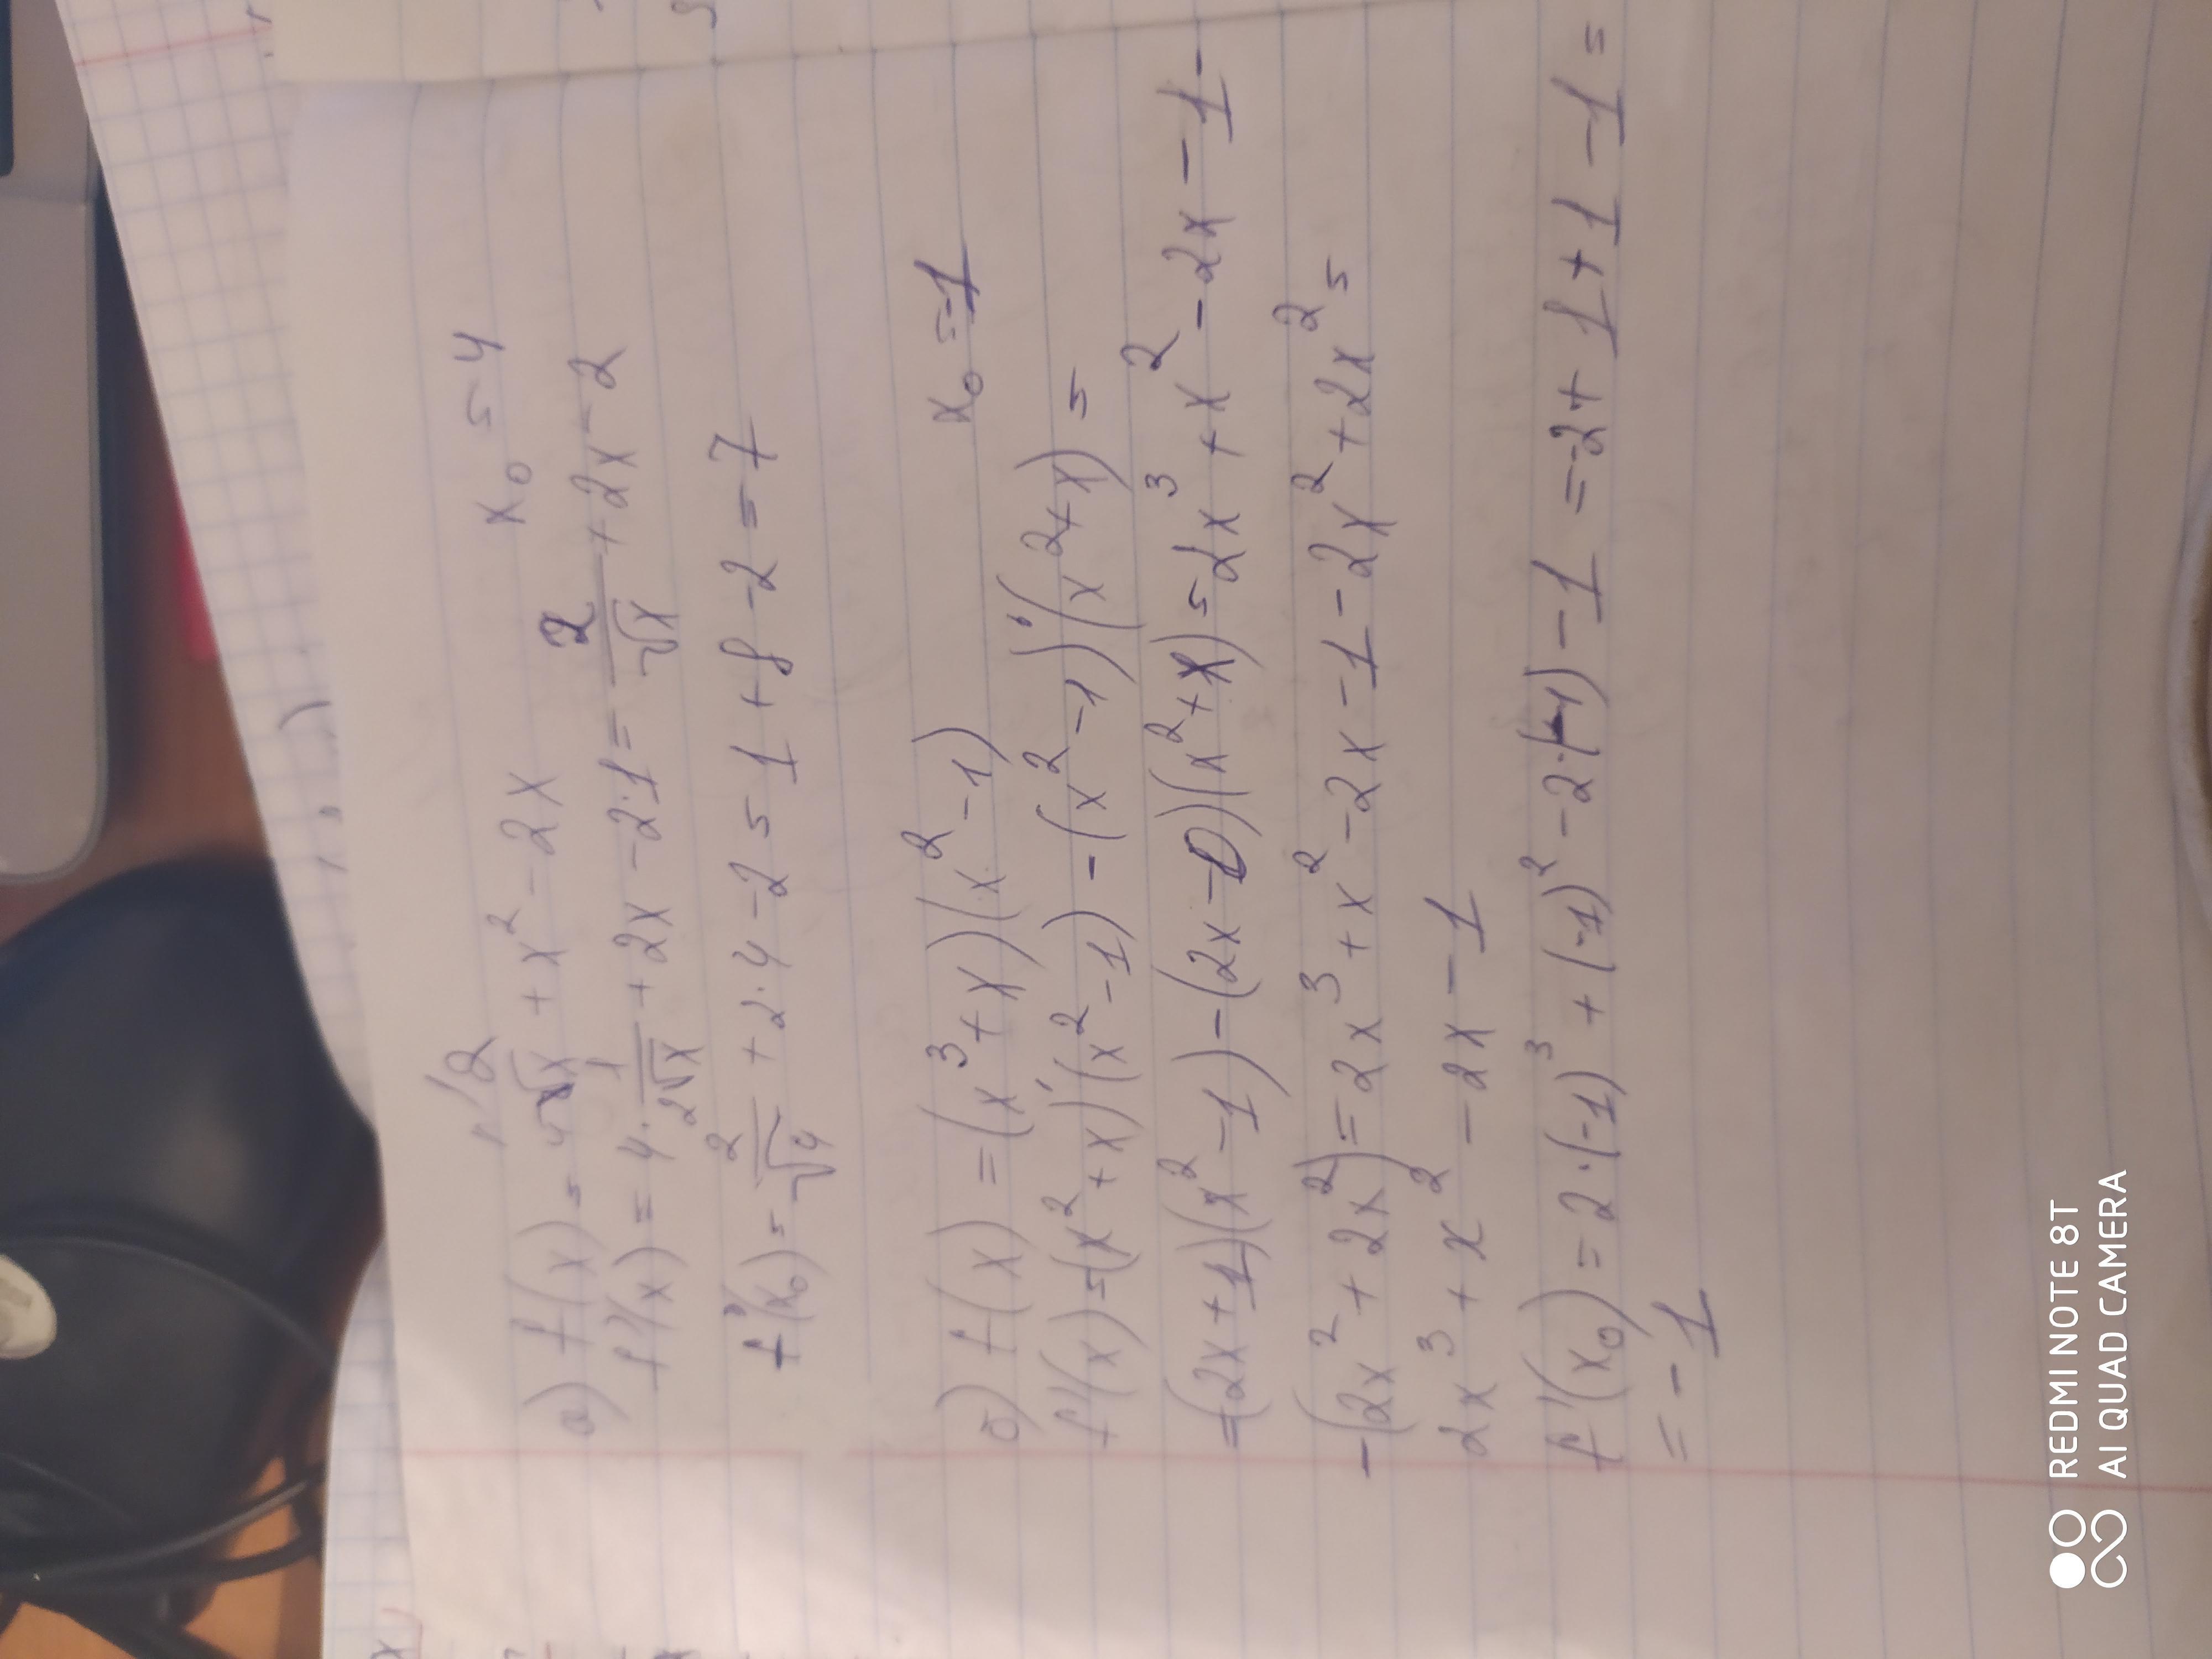 1/2
а) f(x) = 4√x + x² - 2x x₀ = 4
f'(x) = 4 · 1/(2√x) + 2x - 2·1 = 2/√x + 2x - 2
f'(x₀) = 2/√4 + 2·4 - 2 = 1 + 8 - 2 = 7
б) f(x) = (x³ + x)(x² - 1) x₀ = -1
f'(x) = (x² + x)'(x² - 1) - (x² - 1)'(x² + x) =
= (2x + 1)(x² - 1) - (2x - 0)(x² + x) = 2x³ + x² - 2x - 1 -
- (2x² + 2x²) = 2x³ + x² - 2x - 1 - 2x² + 2x² =
2x³ + x² - 2x - 1
f'(x₀) = 2·(-1)³ + (-1)² - 2·(-1) - 1 = -2 + 1 + 1 - 1 =
= -1
REDMI NOTE 8T
AI QUAD CAMERA